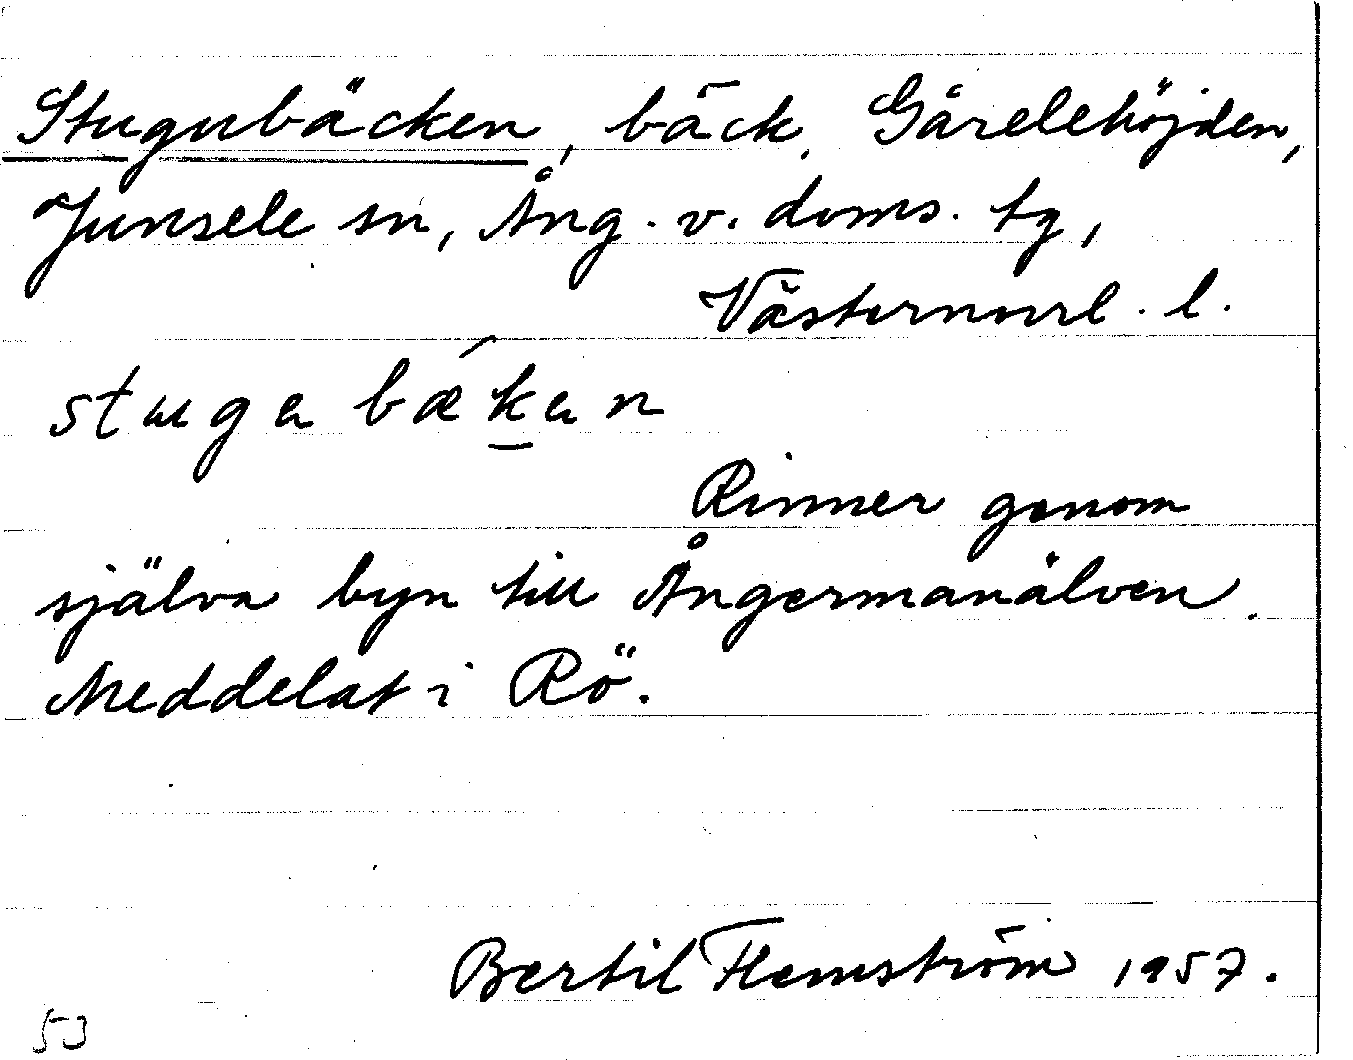 Stugubäcken, bäck, Gårelehöjden,
Junsele sn, Ång. v. doms. tg,
Västernorrl. l.
stugabǽkan
Rinner genom
själva byn till Ångermanälven.
Meddelat i Rö.
Bertil Flemström 1957.
53